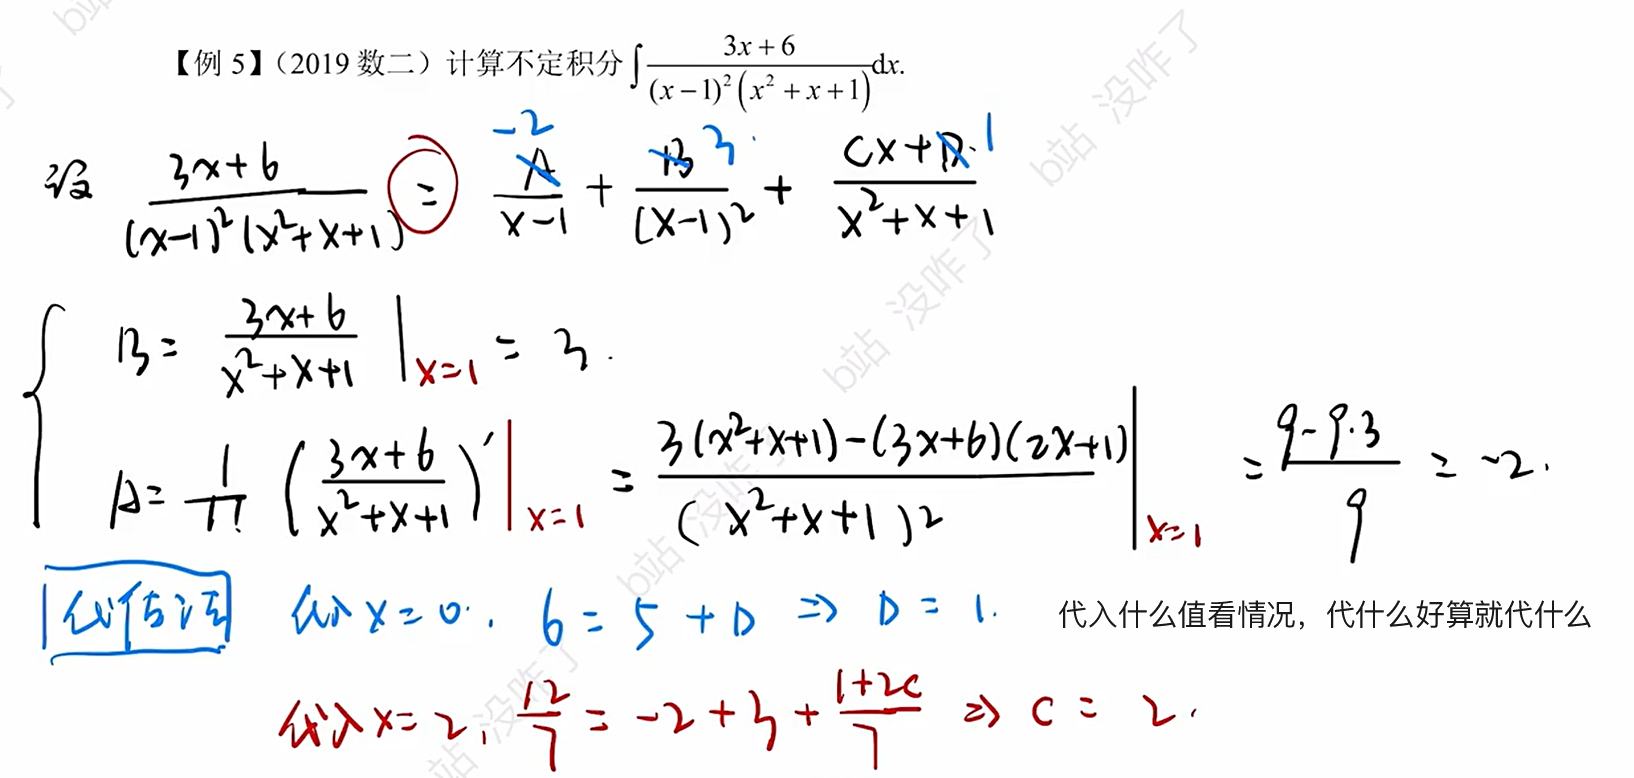 【例 5】（2019 数二）计算不定积分∫ (3x+6)/((x−1)²(x²+x+1)) dx.
设 (3x+6)/((x-1)²(x²+x+1)) = A/(x-1) + B/(x-1)² + (Cx+D)/(x²+x+1)
-2 3 1
B = (3x+6)/(x²+x+1) |x=1 = 3.
A = 1/1! ((3x+6)/(x²+x+1))′ |x=1 = (3(x²+x+1)-(3x+6)(2x+1))/(x²+x+1)² |x=1 = (9-9·3)/9 = -2.
代值法 代入 x=0, 6 = 5 + D ⇒ D = 1. 代入什么值看情况，代什么好算就代什么
代入 x=2, 12/7 = -2+3+(1+2C)/7 ⇒ C = 2.
b站 没咋了
b站 没咋了
b站 没咋了
b站 没咋了
b站 没咋了